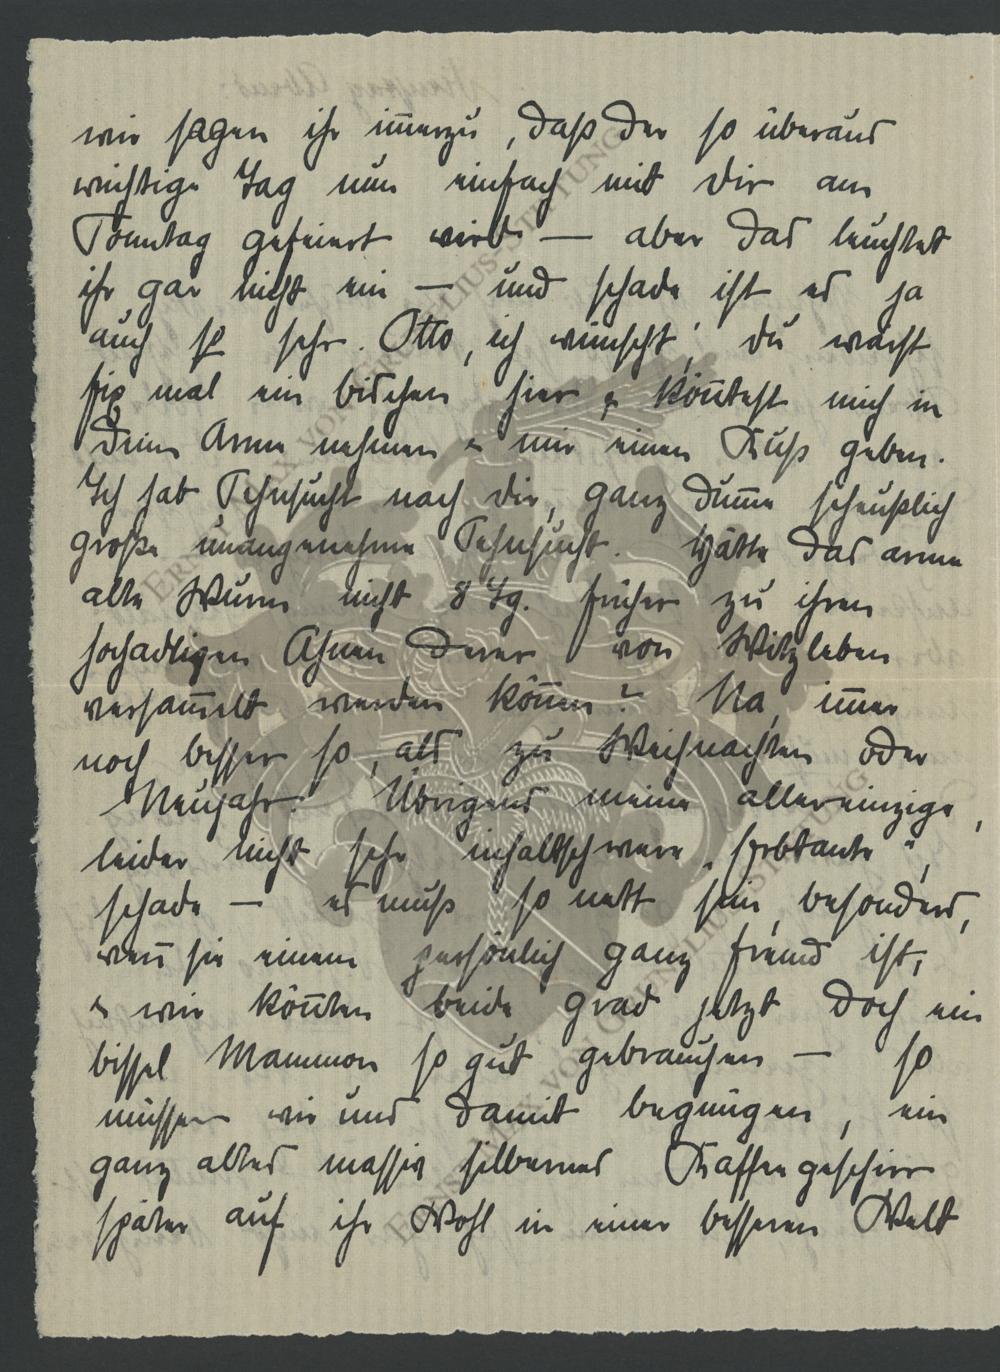 wir sagen ihr im̄erzu, daß der so überaus
wichtige Tag nun einfach mit dir am
Sonntag gefeiert wird — aber das leuchtet
ihr gar nicht ein — und schade ist es ja
auch so sehr. Otto, ich wünscht', du wärst
fix mal ein bischen hier & kön̄test mich in
Deine Arme nehmen & mir einen Kuß geben.
Ich hab Sehnsucht nach dir, ganz dum̄e scheußlich
große unangenehme Sehnsucht. Hätte das arme
alte Wurm nicht 8 Tg. früher zu ihren
hochadligen Ahnen derer von Witzleben
versam̄elt werden kön̄en? Na, im̄er
noch besser so, als zu Weihnachten oder
Neujahr. Übrigens meine allereinzige,
leider nicht sehr inhaltschwere „Erbtante",
schade — es muß so nett sein, besonders,
wen̄ sie einem persönlich ganz fremd ist,
& wir kön̄ten beide grad jetzt doch ein
bissel Mammon so gut gebrauchen — so
müssen wir uns damit begnügen, ein
ganz altes massiv silbernes Kaffeegeschirr
später auf ihr Wohl in einer besseren Welt
ERNST VON GEORG CORNELIUS-STIFTUNG